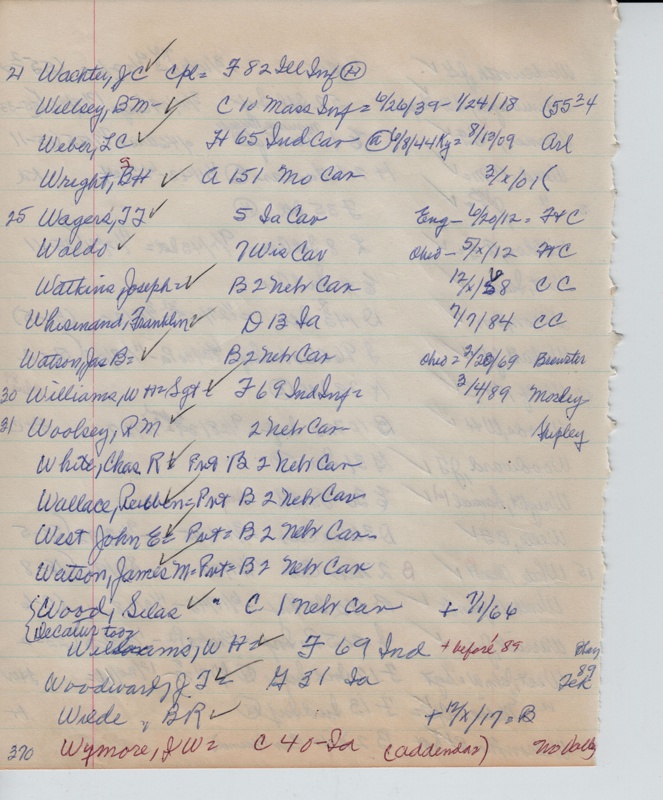 21 Wachter, J C ✓ Cpl = F 82 Ill Inf
Willsey, B M - ✓ C 10 Mass Inf = 6/26/39 - 1/24/18 (55-24
Weber, L C ✓ H 65 Ind Cav @ 6/8/44 Ky = 8/13/09 Arl
Wright, B H ✓ A 151 Mo Cav 3/x/01 (
25 Wagers, T J ✓ 5 Ia Cav Eng - 6/20/12 = H C
Waldo ✓ 7 Wis Cav Ohio - 5/x/12 H C
Watkins, Joseph = ✓ B 2 Nebr Cav 12/x/ 8 C C
Whismand, Franklin = ✓ D 13 Ia 7/7/84 C C
Watson, Jas B = ✓ B 2 Nebr Cav Ohio = /69 Brewster
30 Williams, W H = Sgt = ✓ F 69 Ind Inf = 3/4/89 Mosley
31 Woolsey, R M ✓ 2 Nebr Cav Shipley
White, Chas R ✓ Pvt B 2 Nebr Cav
Wallace, Reuben = Pvt B 2 Nebr Cav
West John E = ✓ Pvt = B 2 Nebr Cav
Watson, James M = Pvt = B 2 Nebr Cav
Wood, Silas ✓ " C 1 Nebr Cav + 7/1/64
Decatur
Williams, W H = ✓ F 69 Ind + before 89
Woodward, J T = ✓ G 31 Ia 89 Feb
Wilde, B R ✓ + 12/x/17 = B
370 Wymore, J W = C 40 - Ia (addendas) No Valley